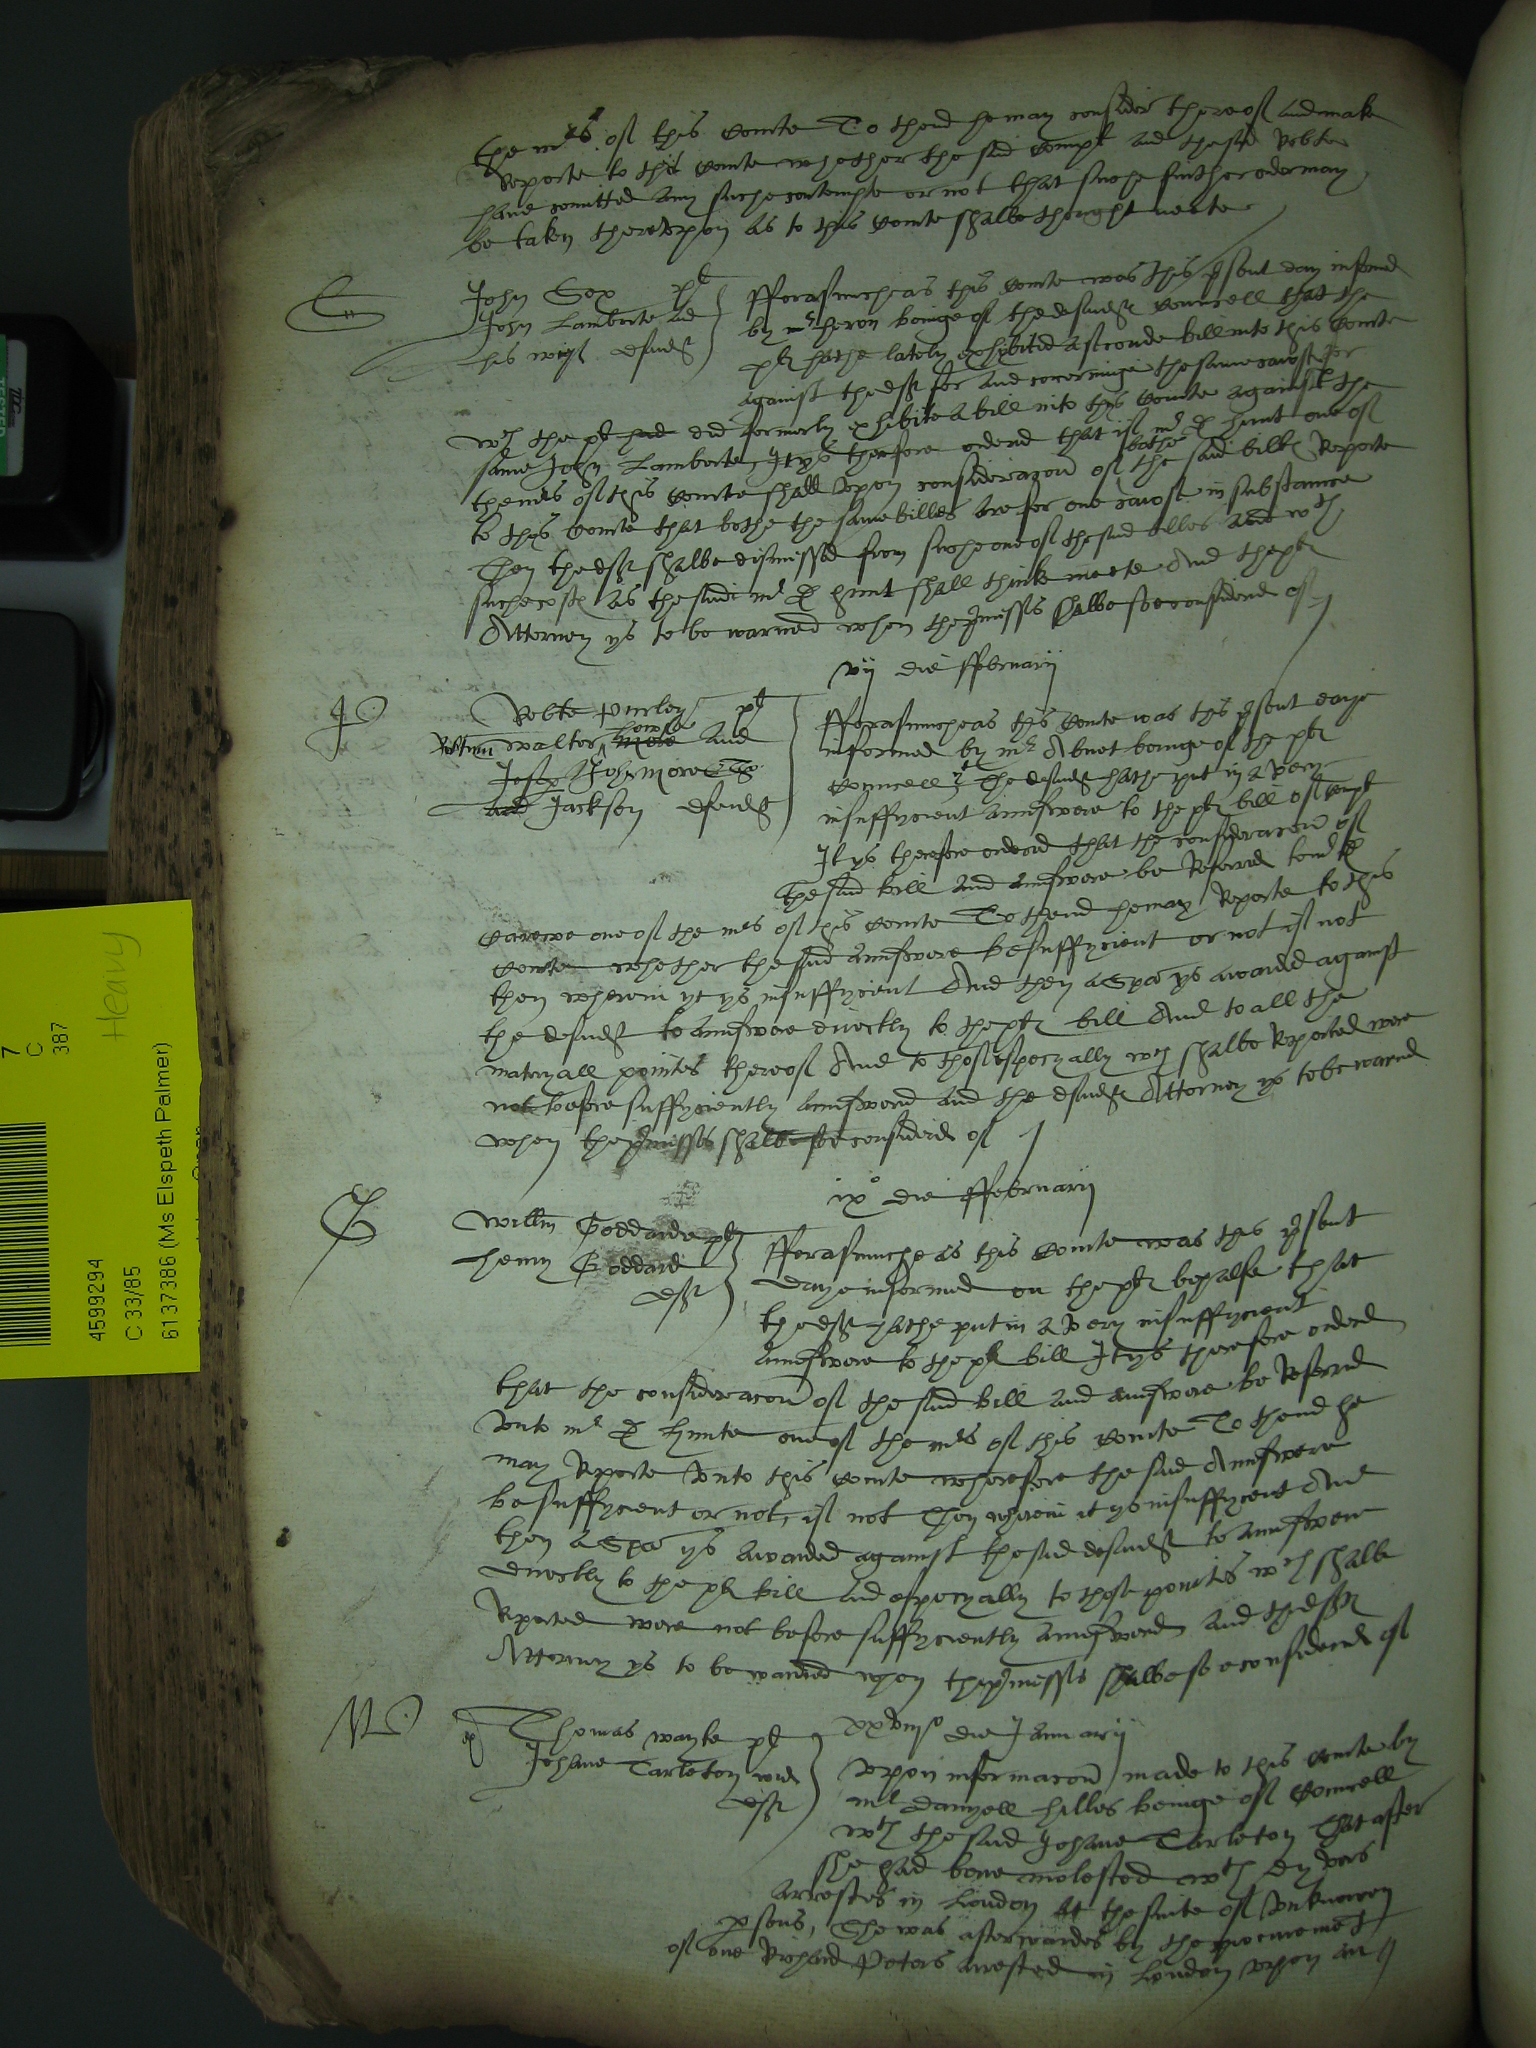 the mrs of this Courte To thend he may consider thereof and make
Reporte to this Courte whether the said Compl and the said Robte
have comitted any suche contempte or not that suche further order may
be taken thereupon as to this Courte shalbe thought meete
John Cox pl
John Lamberte and
his wyf defendt
Forasmucheas this Courte was this psent day informed
by mr heron beinge of the defendt Councell that the
pl hathe lately exhibited a seconde bill into this Courte
against the deft for and concerninge the same cause for
wch the pl had did formerly exhibite a bill into this Courte against the
same John Lamberte, It ys therfore ordered that if mr D hunt one of
the mrs of this Courte shall upon consideracon of bothe the said bill Reporte
to this Courte that bothe the same billes are for one cause in substance
Then the deft shalbe dismissed from suche one of the said billes and wth
suche cost as the said mr D hunt shall think meete And the pl
Attorney ys to be warned when the pmisses shalbe soe considered of
vij die Februarij
Robte purley pl
walter howse more and
John more
and Jackson defendt
Forasmucheas this Courte was this psent daye
informed by mr Abnet beinge of the pl
Councell yt the defendt hathe put in a very
insuffycient aunswere to the pl bill of Compl
It ys therefore ordered that the consideracon of
the said bill and aunswere be Referred to mr D
Carewe one of the mrs of this Courte To thend he may Reporte to this
Courte whether the said aunswere be suffycient or not if not
then wherein yt ys insuffycient And then a Spa ys awarded against
the defendt to aunswere directly to the pl bill And to all the
materyall pointes thereof And to those especyally wch shalbe Reported were
not before suffyciently aunswered and the defendt Attorney ys to be warned
when the pmisses shalbe soe considered of
ixo die Februarij
Willm Goddarde pl
Henry Goddard
deft
Forasmucheas this Courte was this psent
daye informed on the pl behalfe that
the deft hathe put in a very insuffycient
aunswere to the pl bill It ys therefore ordered
that the consideracon of the said bill and aunswere be Referred
unto mr D hunte one of the mrs of this Courte To thend he
may Reporte unto this Courte wherefore the said Aunswere
be suffycient or not, if not Then wherein it ys insuffycient And
then a Spa ys awarded against the said defendt to aunswere
directly to the pl bill and especyally to those pointes wch shalbe
Reported were not before suffyciently aunswered and the deft
Attorney ys to be warned when the pmisses shalbe soe considered of
Thomas wayte pl
Johane Tarleton wid
deft
xxviijo die Januarij
Upon informacon made to this Courte by
mr Danyell hilles beinge of Councell
wth the said Johane Tarleton That after
she had bene molested wth dyvers
arrestes in London at the suite of unknowen
psons, She was afterwardes by the procurement
of one Richard Peters arrested in London upon an
7
C
387
Heavy
4599294
C 33/85
6137386 (Ms Elspeth Palmer)